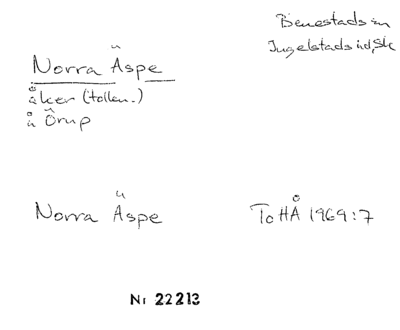 Benestads sn
Ingelstads hd, Sk
Norra Äspe
åker (tollen.)
å Örup
Norra Äspe ToHÅ 1969:7
Nr 22213